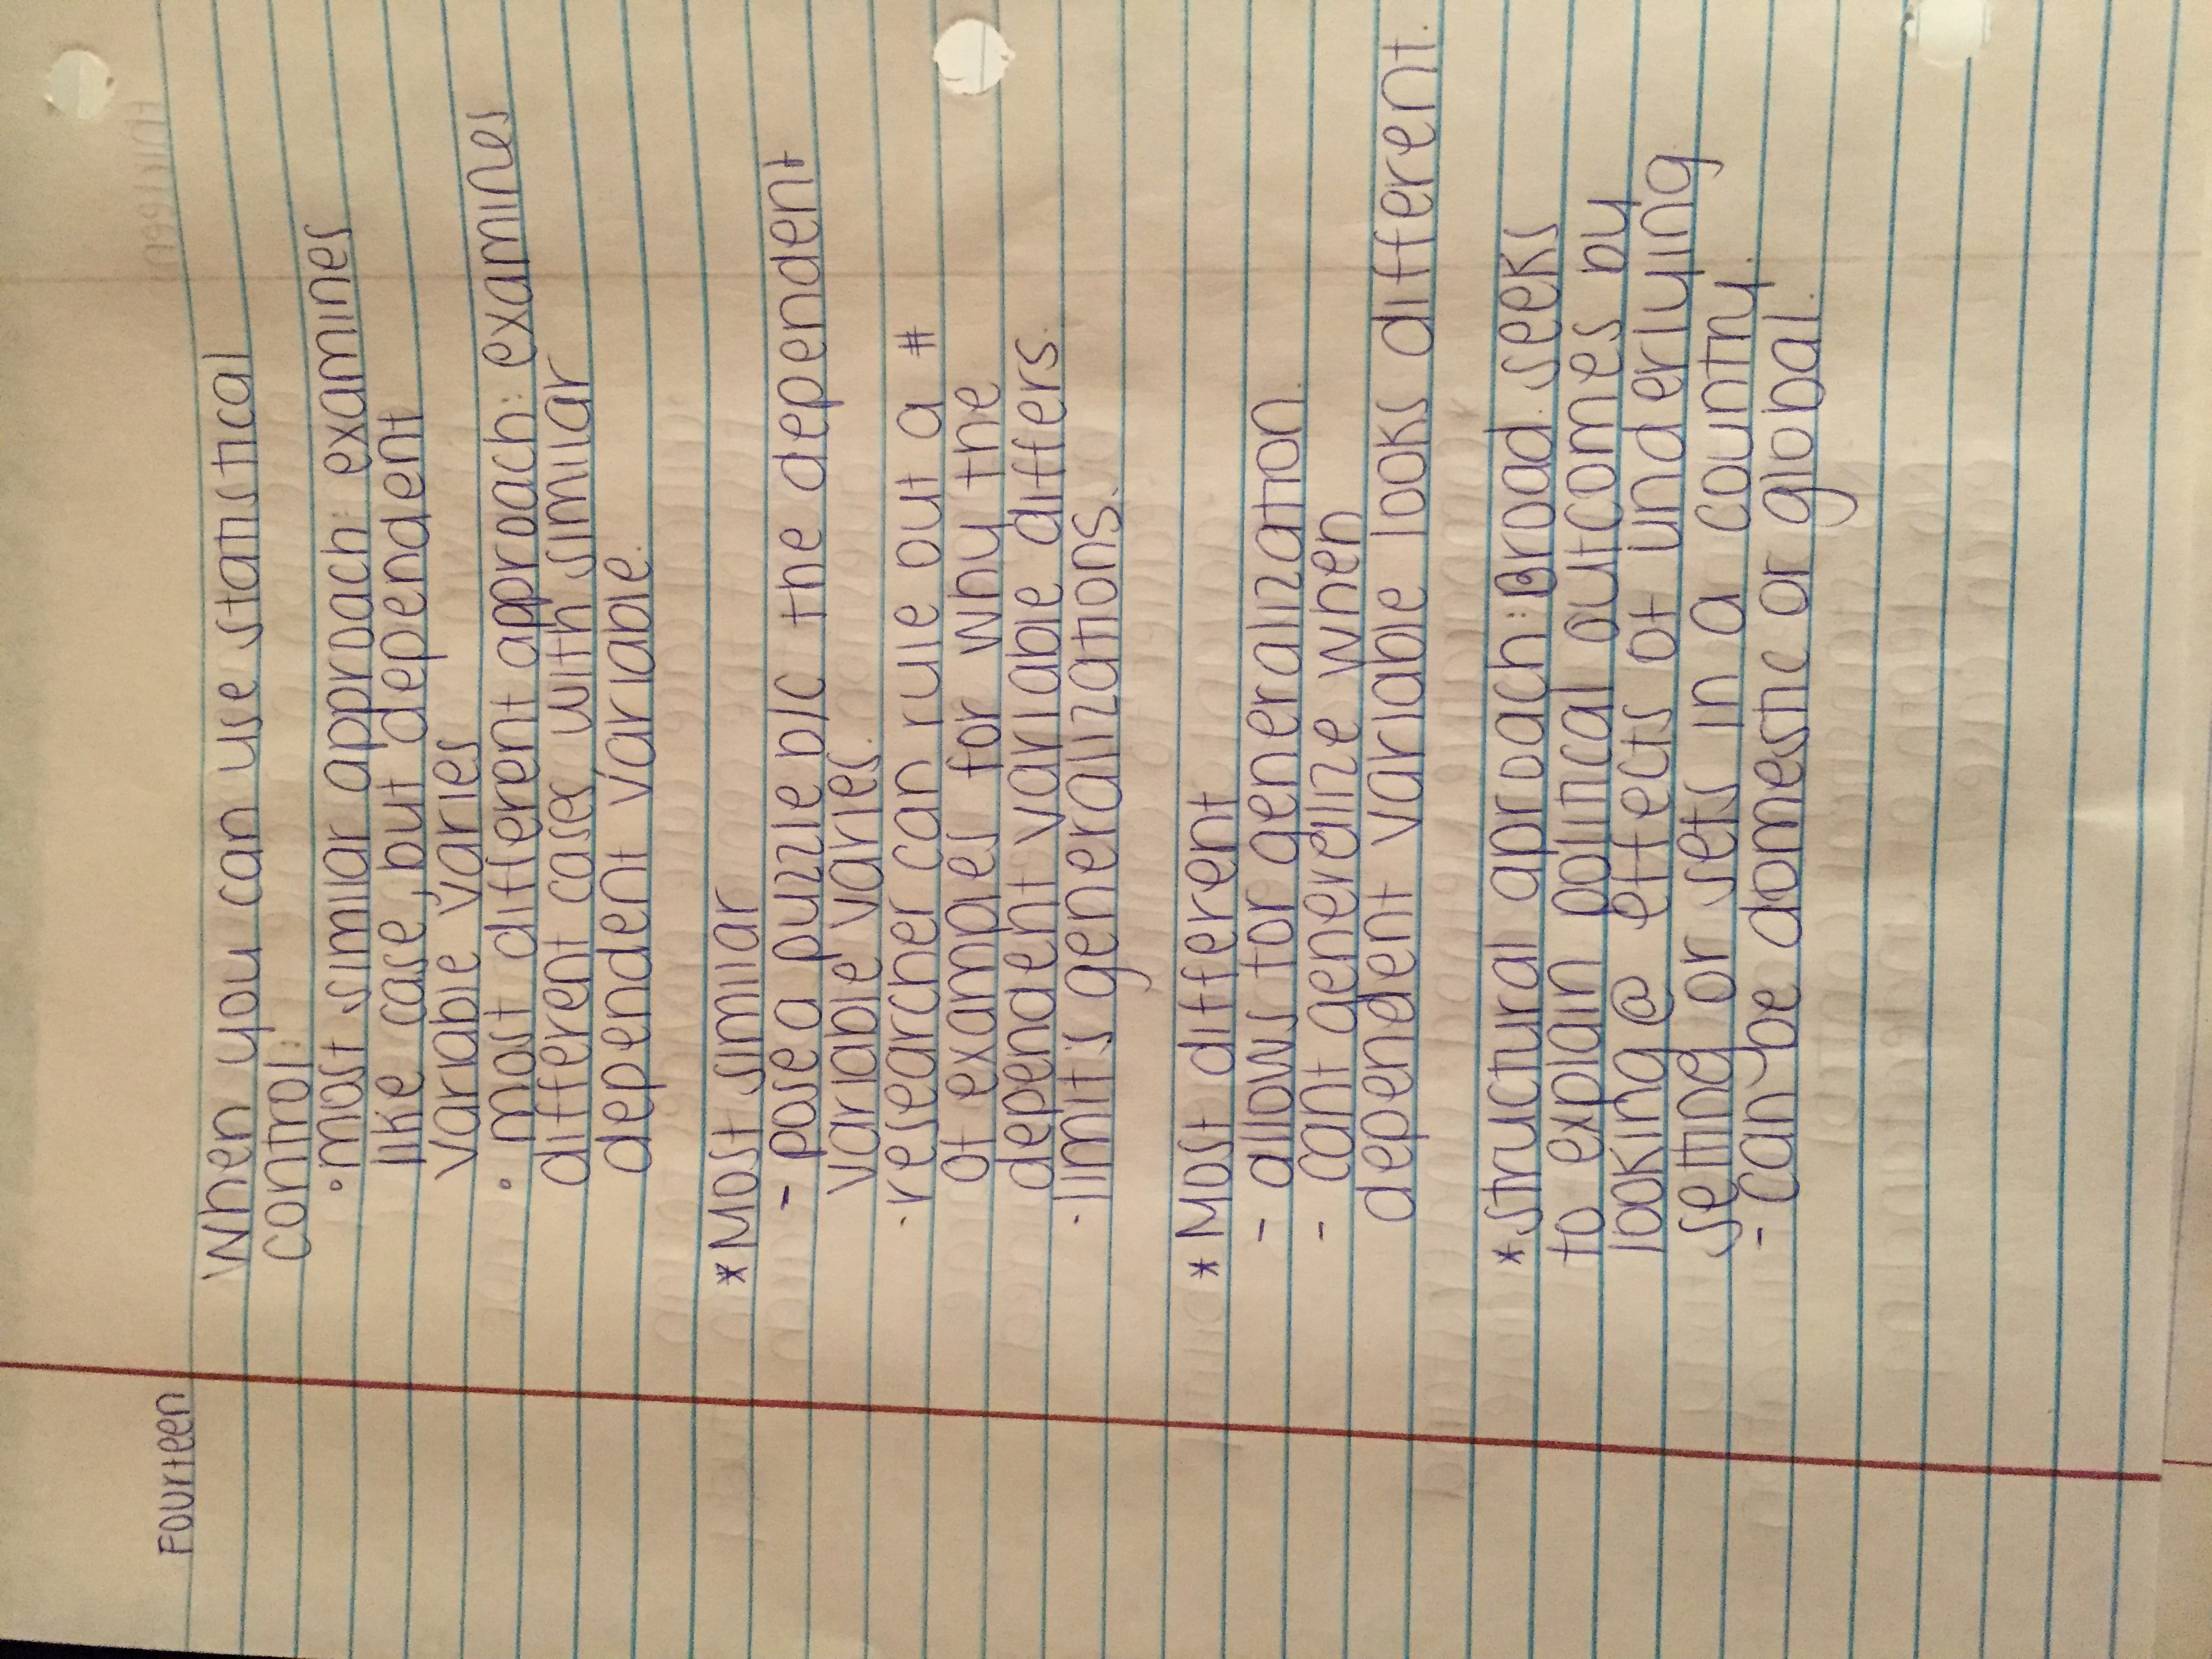 Fourteen
When you can use statistical
control:
° most similar approach: examines
like case, but dependent
variable varies
° most different approach: examines
different cases with similar
dependent variable.
* Most similar
- pose a puzzle b/c the dependent
variable varies.
· researcher can rule out a #
of exampes for why the
dependent variable differs.
· limits generalizations.
* Most different
- allows for generalization.
- cant generalize when
dependent variable looks different.
* structural aproach: Broad. seeks
to explain political outcomes by
looking @ effects of underlying
setting or sets in a country.
- can be domestic or global.